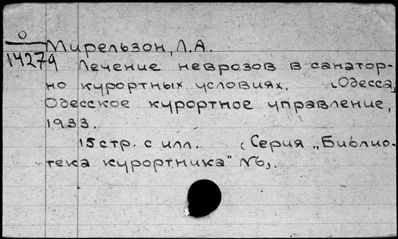 О
14279
Мирельзон, Л.А.
Лечение неврозов в санатор-
но курортных условиях. (Одесса,
Одесское курортное управление,
1933.
15 стр. с илл. (Серия „Библио-
тека курортника" №6).